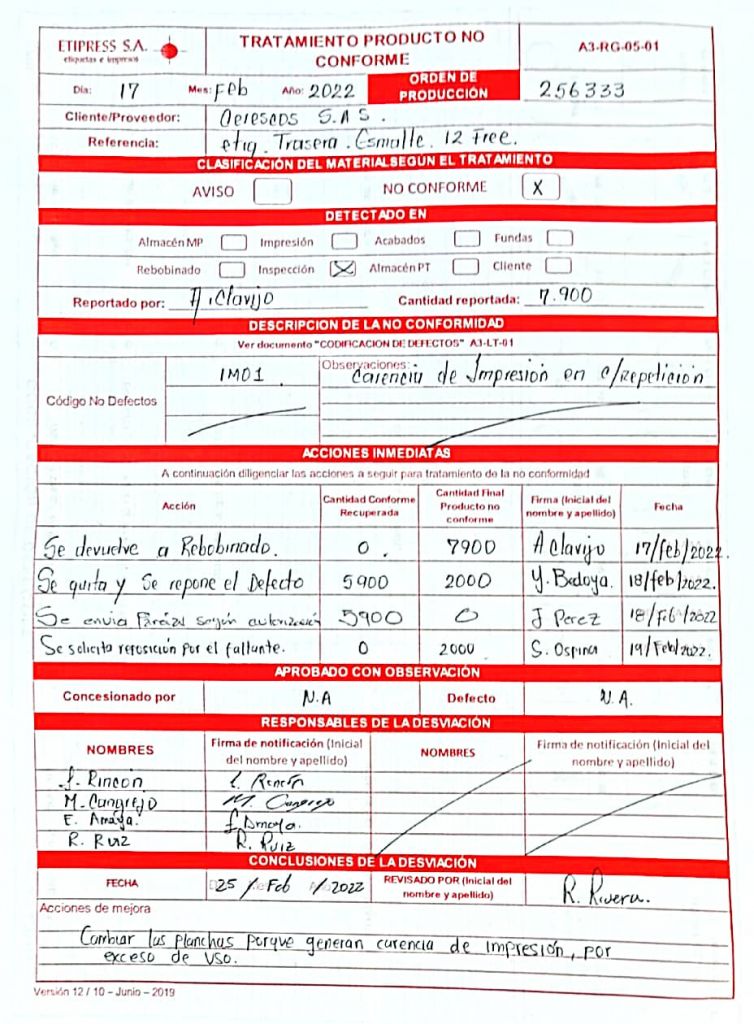 ETIPRESS S.A.
etiquetas e impresos
TRATAMIENTO PRODUCTO NO CONFORME
A3-RG-05-01
Día: 17 Mes: Feb Año: 2022 ORDEN DE PRODUCCIÓN 256333
Cliente/Proveedor: Oereseos S.A.S.
Referencia: etiq. Trasera. Esmalte. 12 Free.
CLASIFICACIÓN DEL MATERIAL SEGÚN EL TRATAMIENTO
AVISO NO CONFORME X
DETECTADO EN
Almacén MP Impresión Acabados Fundas
Rebobinado Inspección X Almacén PT Cliente
Reportado por: A. Clavijo Cantidad reportada: 7.900
DESCRIPCION DE LA NO CONFORMIDAD
Ver documento "CODIFICACION DE DEFECTOS" A3-LT-01
Código No Defectos 1M01 Observaciones: Carencia de Impresión en c/repetición
ACCIONES INMEDIATAS
A continuación diligenciar las acciones a seguir para tratamiento de la no conformidad
Acción Cantidad Conforme Recuperada Cantidad Final Producto no conforme Firma (Inicial del nombre y apellido) Fecha
Se devuelve a Rebobinado. 0. 7900 A Clavijo 17/feb/2022.
Se quita y Se repone el Defecto 5900 2000 Y. Bedoya. 18/feb/2022.
Se envia Parcial según autorización 5900 0 J Perez 18/Feb/2022
Se solicita reposición por el faltante. 0 2000 S. Ospina 19/Feb/2022.
APROBADO CON OBSERVACIÓN
Concesionado por N.A Defecto N.A.
RESPONSABLES DE LA DESVIACIÓN
NOMBRES Firma de notificación (Inicial del nombre y apellido) NOMBRES Firma de notificación (Inicial del nombre y apellido)
Rincón Rincón
M. Cangrejo M. Cangrejo
E. Amaya. E Amaya.
R. Ruiz R. Ruiz
CONCLUSIONES DE LA DESVIACIÓN
FECHA 25 / Feb / 2022 REVISADO POR (Inicial del nombre y apellido) R. Rivera.
Acciones de mejora
Cambiar las planchas porque generan carencia de impresión, por
exceso de uso.
Versión 12 / 10 – Junio – 2019